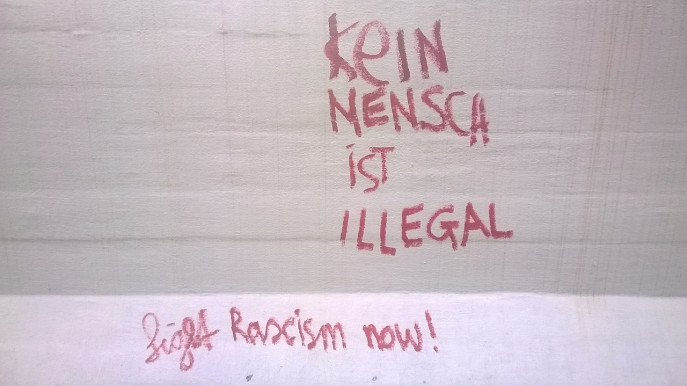 KeiN
MENSCH
iST
ILLEGAL
fight Rascism now!